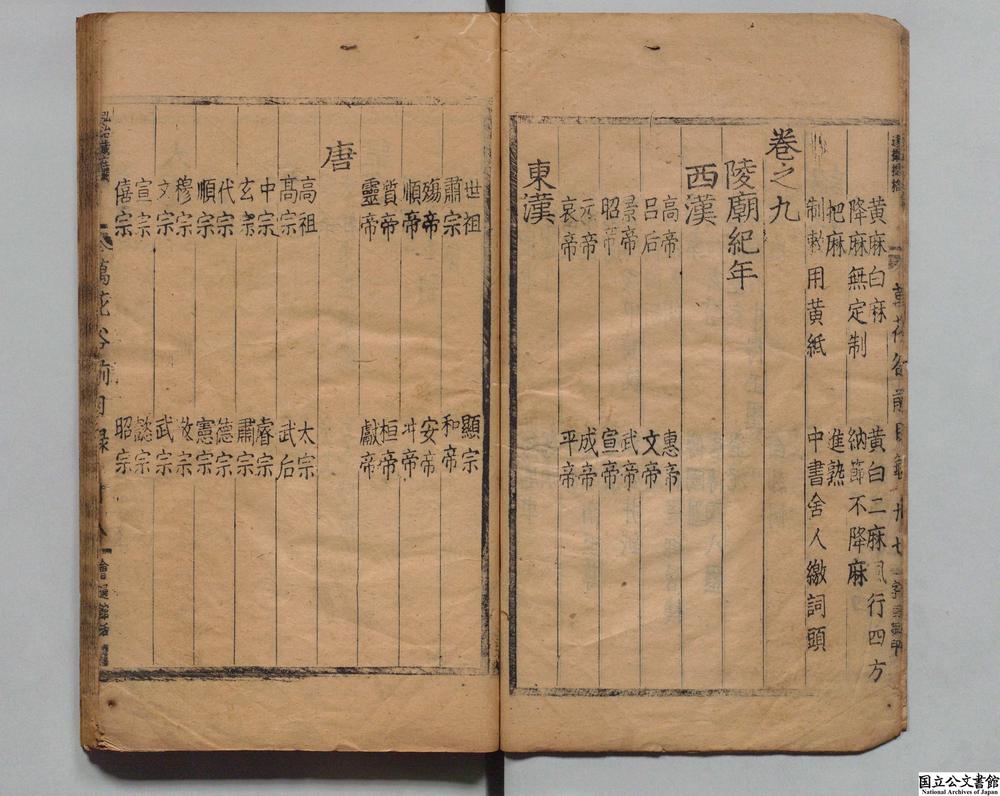 黃麻白麻　黃白二麻　行四方
降麻無定制　納節不降麻
把麻　進熟
制敕用黃紙　中書舍人繳詞頭
卷之九
陵廟紀年
西漢
高帝　惠帝
呂后　文帝
景帝　武帝
昭帝　宣帝
元帝　成帝
哀帝　平帝
東漢
世祖　顯宗
肅宗　和帝
殤帝　安帝
順帝　冲帝
質帝　桓帝
靈帝　獻帝
唐
高祖　太宗
高宗　武后
中宗　睿宗
玄宗　肅宗
代宗　德宗
順宗　憲宗
穆宗　敬宗
文宗　武宗
宣宗　懿宗
僖宗　昭宗
萬花谷前目錄
国立公文書館
National Archives of Japan